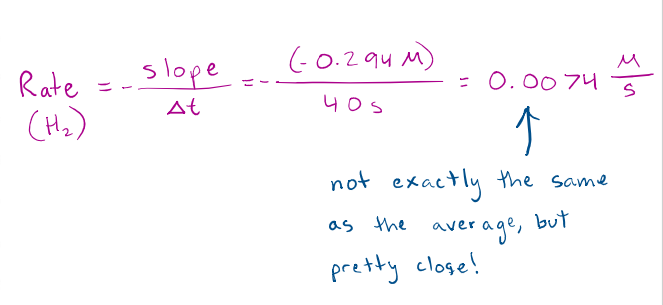 Rate (H₂) = - slope / Δt = - (-0.294 M) / 40s = 0.0074 M/s
not exactly the same
as the average, but
pretty close!